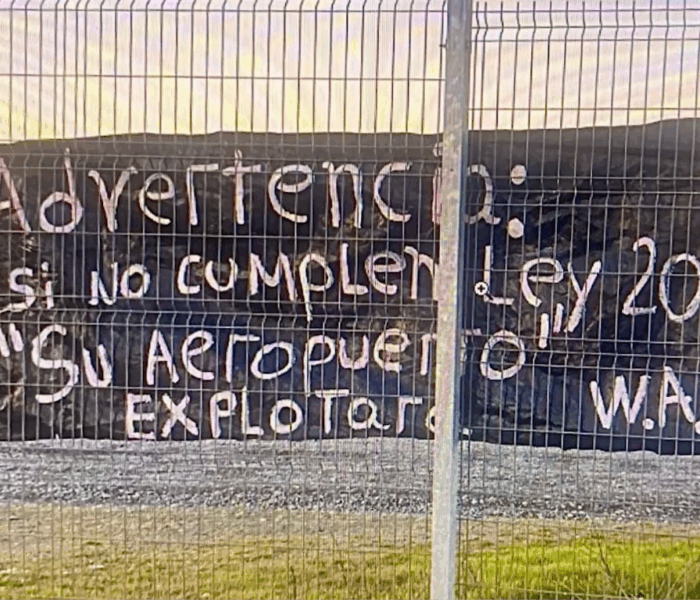 Advertencia:
si NO cumplen Ley 20
"Su Aeropuerto"
EXPLOTara W.A.